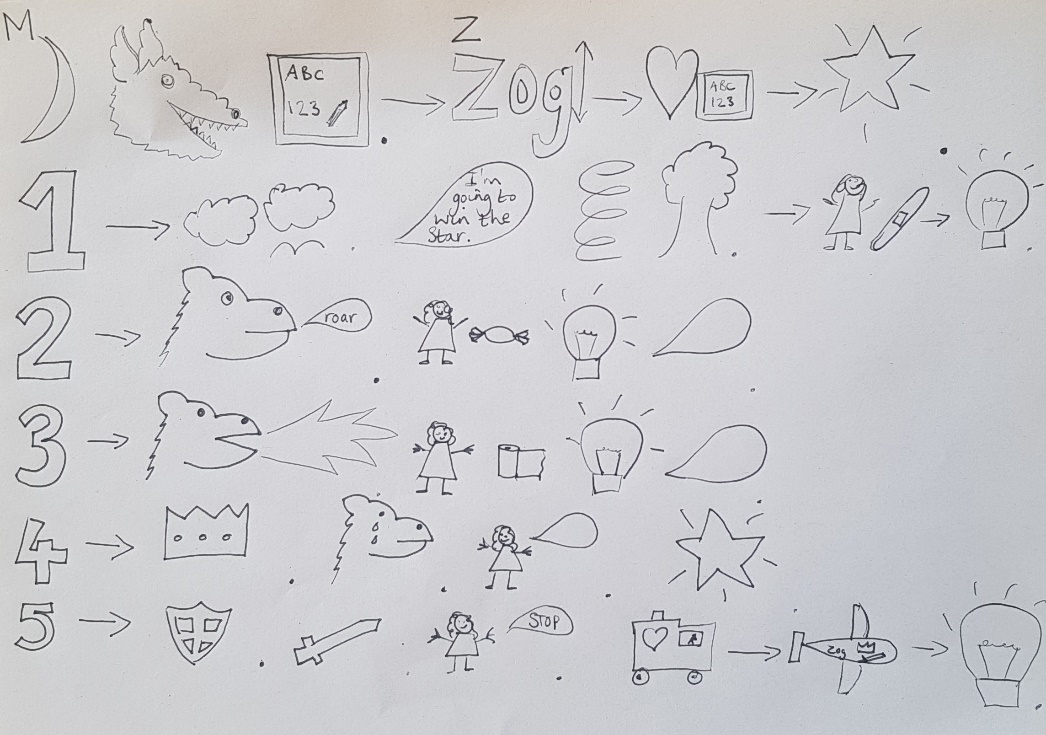 M
Z
ABC
123
Zog
ABC
123
1
I'm
going to
win the
Star.
2
roar
3
4
5
STOP
Zog